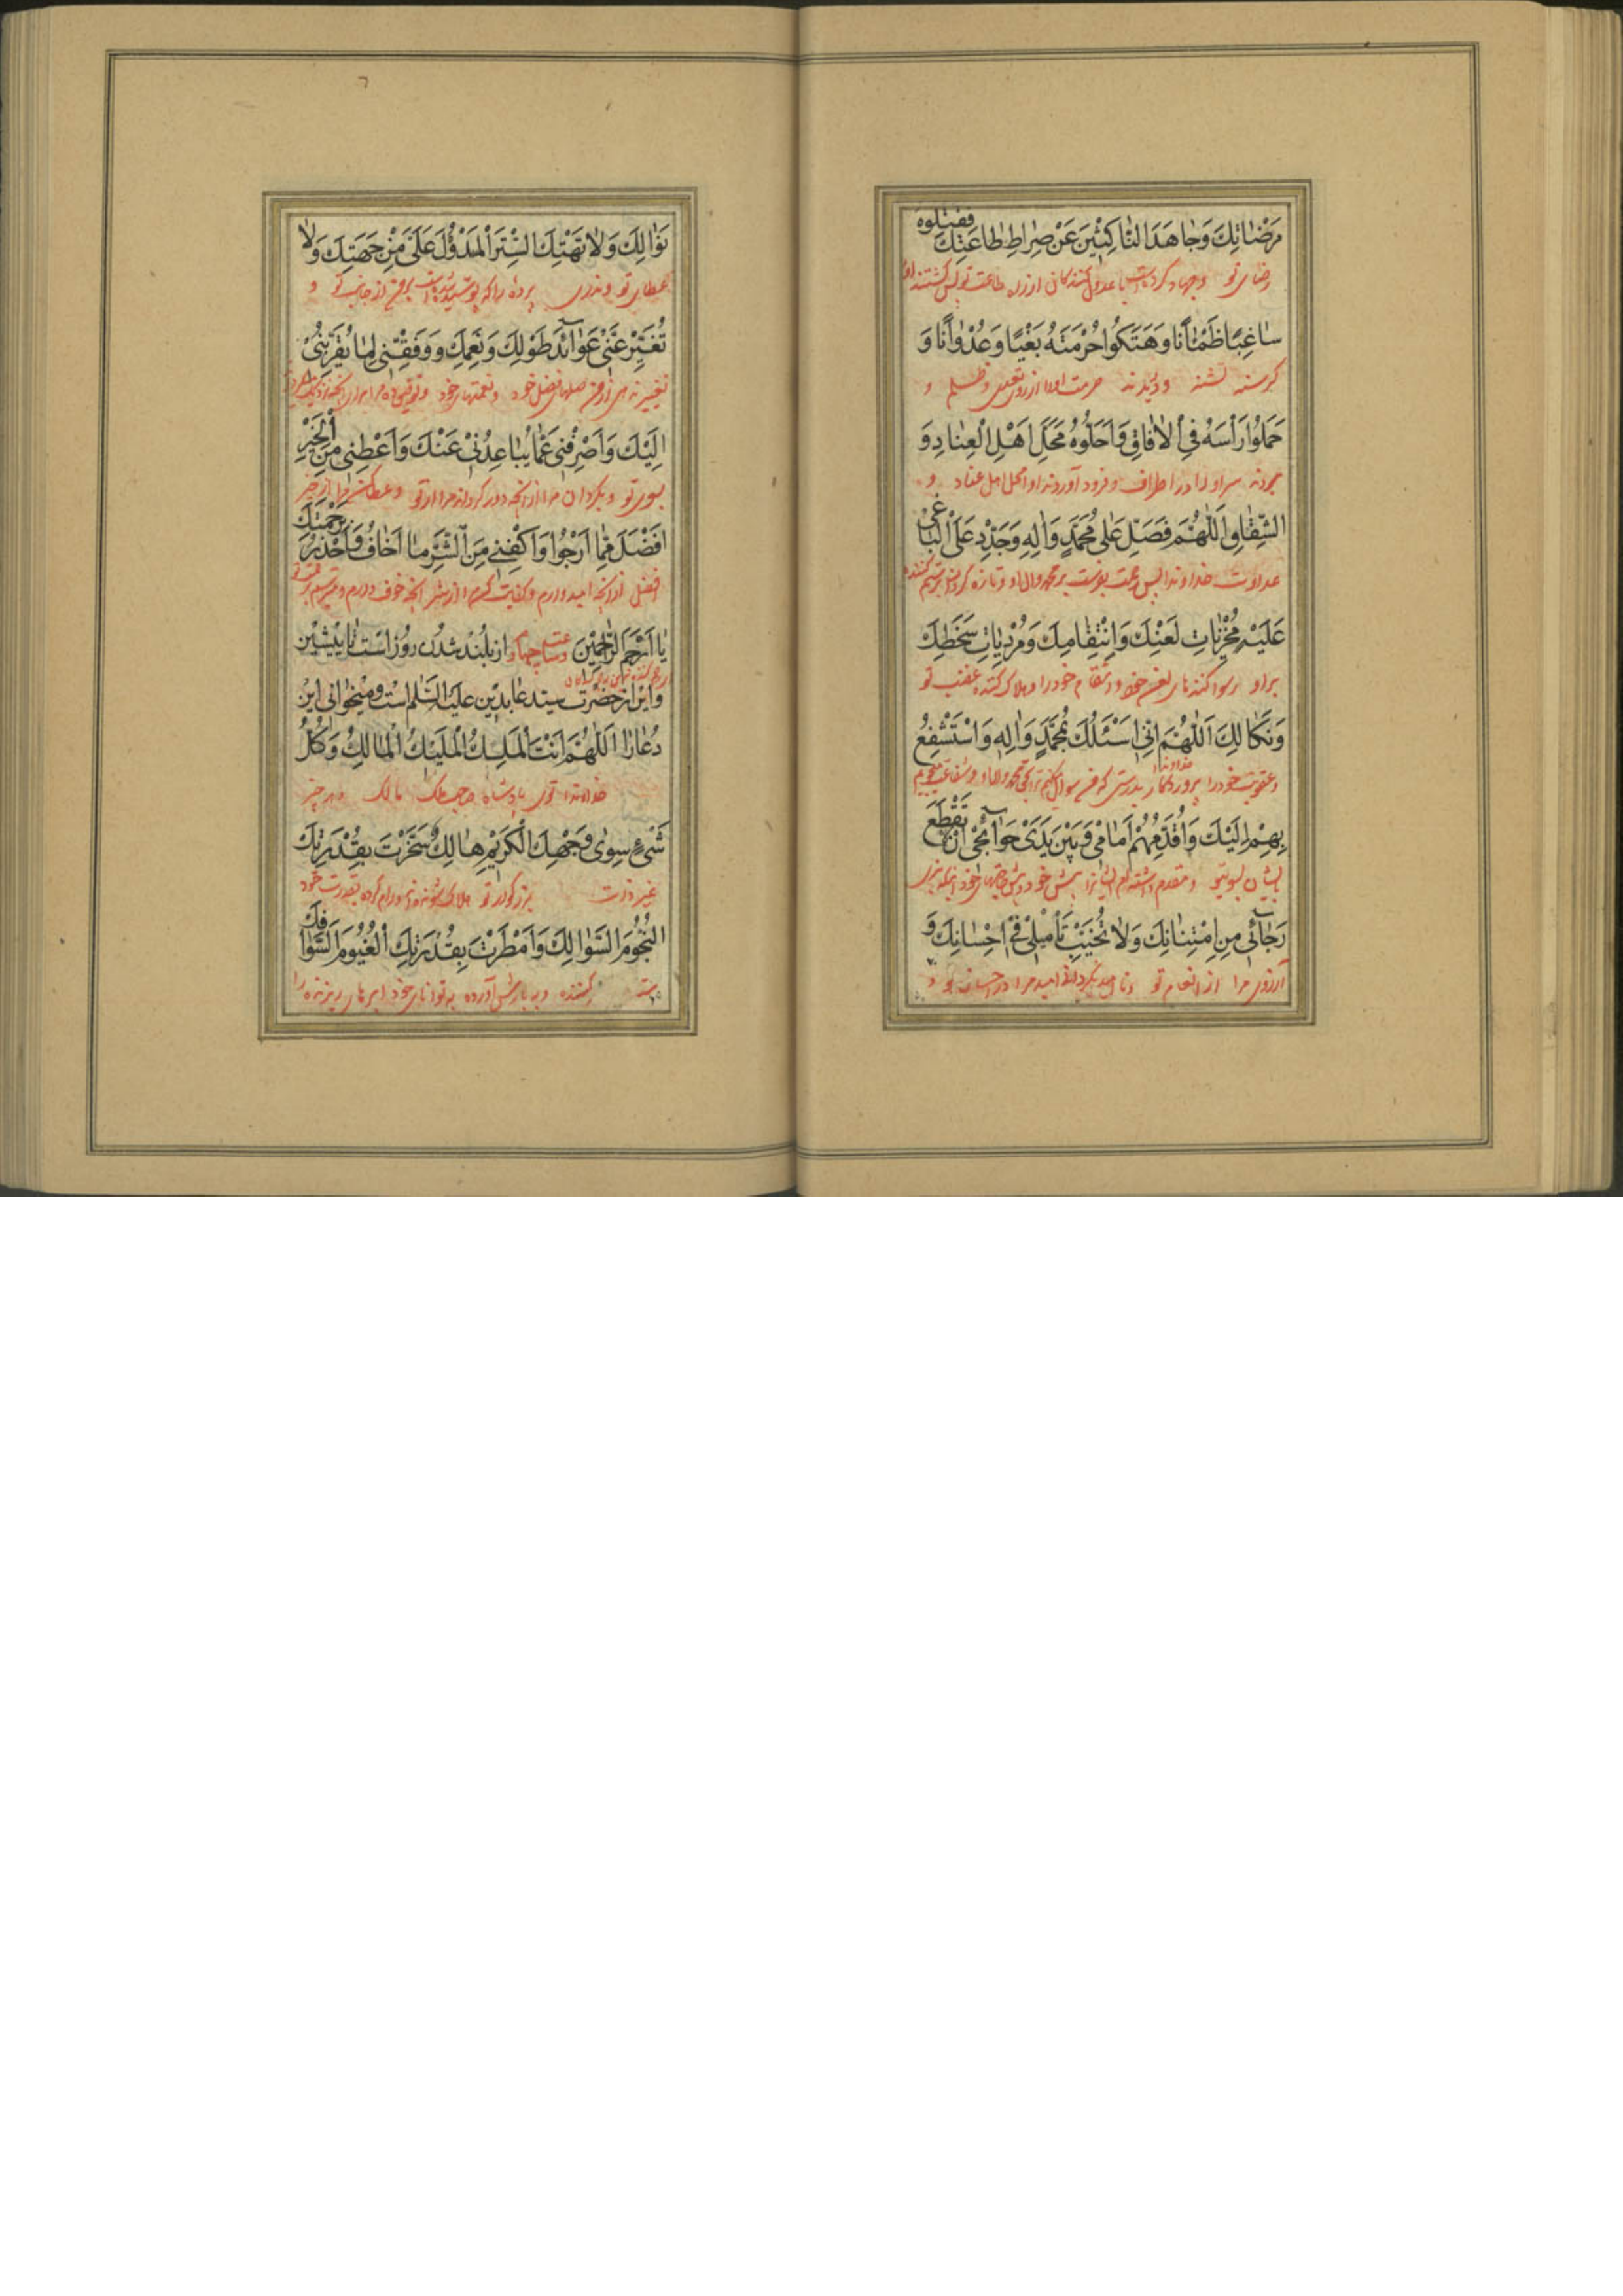 مَرْضَاتِكَ وَجَاهَدَ النَّاكِثِينَ عَنْ صِرَاطِ طَاعَتِكَ فَقَتَلُوهُ
رضای تو و جهاد کرد با عدول کنندگان از راه طاعت تو پس کشتند او
سَاغِبًا ظَمْاٰنًا وَهَتَكُوا حُرْمَتَهُ بَغْيًا وَعُدْوَانًا وَ
گرسنه تشنه و دریدند حرمت او را از روی تعدی و ظلم و
حَمَلُوا رَأْسَهُ فِي الْاٰفَاقِ وَاَحَلُّوهُ مَحَلَّ اَهْلِ الْعِنَادِ وَ
بردند سر او را در اطراف و فرود آوردند او محل اهل عناد و
الشِّقَاقِ اَللّٰهُمَّ فَصَلِّ عَلٰى مُحَمَّدٍ وَاٰلِهِ وَجَدِّدْ عَلَى الْبَاغِي
عداوت خداوندا پس رحمت بفرست بر محمد و آل او و تازه کردان بر ستم کننده
عَلَيْهِ مُخْزِيَاتِ لَعْنِكَ وَانْتِقَامِكَ وَمُرْدِيَاتِ سَخَطِكَ
بر او رسوا کنندهای لعن خود و انتقام خود را و هلاک کننده غضب تو
وَنَكَالِكَ اَللّٰهُمَّ اِنِّي اَسْئَلُكَ بِمُحَمَّدٍ وَاٰلِهِ وَاَسْتَشْفِعُ
و عقوبت خود را پروردکارا بدرستی که من سوال میکنم ترا بحق محمد و آل او و شفاعت میجویم
بِهِمْ اِلَيْكَ وَاُقَدِّمُهُمْ اَمَامِي وَبَيْنَ يَدَيْ حَوَآئِجِي اَنْ لَا تَقْطَعَ
بایشان بسوی تو و مقدم داشته‌ام ایشانرا پیش خود و پیش حاجتهای خود اینکه نبری
رَجَآئِي مِنِ امْتِنَانِكَ وَلَا تُخَيِّبَ تَأْمِيلِي فِي اِحْسَانِكَ وَ
آرزوی مرا از انعام تو و نا امید نکردانی امید مرا در احسان تو و
نَوَالِكَ وَلَا تَهْتِكَ السِّتْرَ الْمَسْدُولَ عَلَيَّ مِنْ جِهَتِكَ وَلَا
عطای تو و ندری پرده را که پوشیده شده است بر من از جانب تو و
تُغَيِّرْ عَنِّي عَوَآئِدَ طَوْلِكَ وَنِعَمِكَ وَوَفِّقْنِي لِمَا يُقَرِّبُنِي
تغییر ندهی از من صلهای فضل خود و نعمتهای خود و توفیق ده مرا برای آنچه نزدیک
اِلَيْكَ وَاصْرِفْنِي عَمَّا يُبَاعِدُنِي عَنْكَ وَاَعْطِنِي مِنَ الْخَيْرِ
بسوی تو و بکردان مرا از آنچه دور کرداند مرا از تو و عطا کن مرا از خیر
اَفْضَلَ مِمَّا اَرْجُوا وَاكْفِنِي مِنَ الشَّرِّ مَا اَخَافُ وَاَحْذَرُ بِرَحْمَتِكَ
افضل از آنچه امید دارم و کفایت کن مرا از شر آنچه خوف دارم و میترسم برحمت تو
يَا اَرْحَمَ الرَّاحِمِينَ وساعت چهارم از بلند شدن روز است تا پیشین
و این از حضرت سید عابدین علیه السلام است و میخوانی این
دعا را اَللّٰهُمَّ اَنْتَ الْمَلِكُ الْمَلِيكُ الْمَالِكُ وَكُلُّ
خداوندا توی پادشاه صاحب ملک مالک و هر چیز
شَيْءٍ سِوٰى وَجْهِكَ الْكَرِيمِ هَالِكٌ سَخَّرْتَ بِقُدْرَتِكَ
غیر ذات بزرکوار تو هلاک شونده رام کرده بقدرت خود
النُّجُومَ السَّوَالِكَ وَاَمْطَرْتَ بِقُدْرَتِكَ الْغُيُومَ السَّوَافِكَ
کننده و ببارش آورده بتوانای خود ابرهای ریزنده را